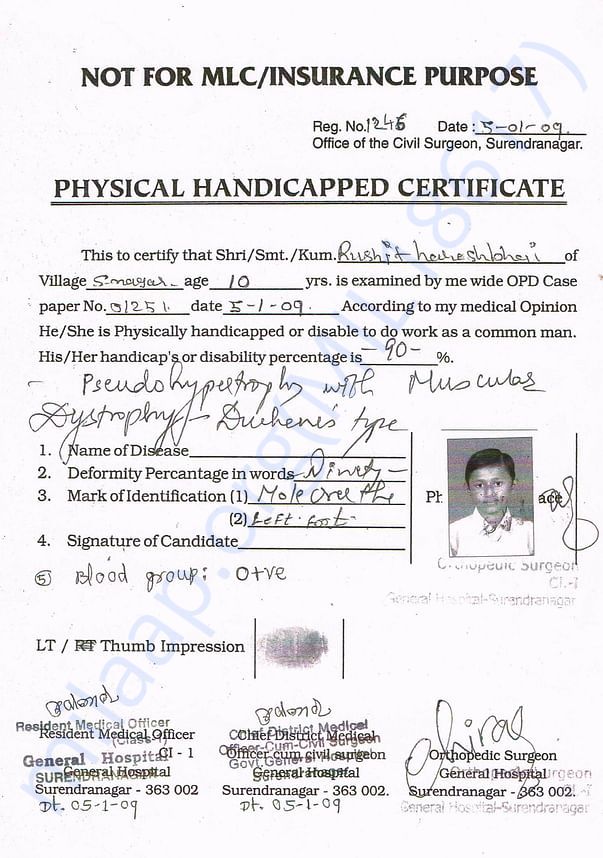 NOT FOR MLC/INSURANCE PURPOSE
Reg. No. 1246 Date : 5-01-09.
Office of the Civil Surgeon, Surendranagar.
PHYSICAL HANDICAPPED CERTIFICATE
This to certify that Shri/Smt./Kum. Rushit hareshbhai of
Village S.nagar age 10 yrs. is examined by me wide OPD Case
paper No. 01251. date 5-1-09. According to my medical Opinion
He/She is Physically handicapped or disable to do work as a common man.
His/Her handicap's or disability percentage is -90- %.
- Pseudohypertrophy with Muscular
Dystrophy - Duchene's type
1. Name of Disease
2. Deformity Percentage in words - Ninety -
3. Mark of Identification (1) Mole over the
(2) Left foot
4. Signature of Candidate
Orthopedic Surgeon
Cl.-I
General Hospital-Surendranagar
⑤ Blood group: O+ve
LT / RT Thumb Impression
Resident Medical Officer
(Class-I)
General Hospital
SURENDRANAGAR
Resident Medical Officer
Cl - 1
General Hospital
Surendranagar - 363 002
Dt. 05-1-09
Chief District Medical
Officer-Cum-Civil Surgeon
Govt. General Hospital
Surendranagar
Chief District Medical
Officer cum civil surgeon
General Hospital
Surendranagar - 363 002.
Dt. 05-1-09
Orthopedic Surgeon
General Hospital
Surendranagar - 363 002.
Orthopedic Surgeon
Cl.-I
General Hospital-Surendranagar
milaap.org(MIL18617)